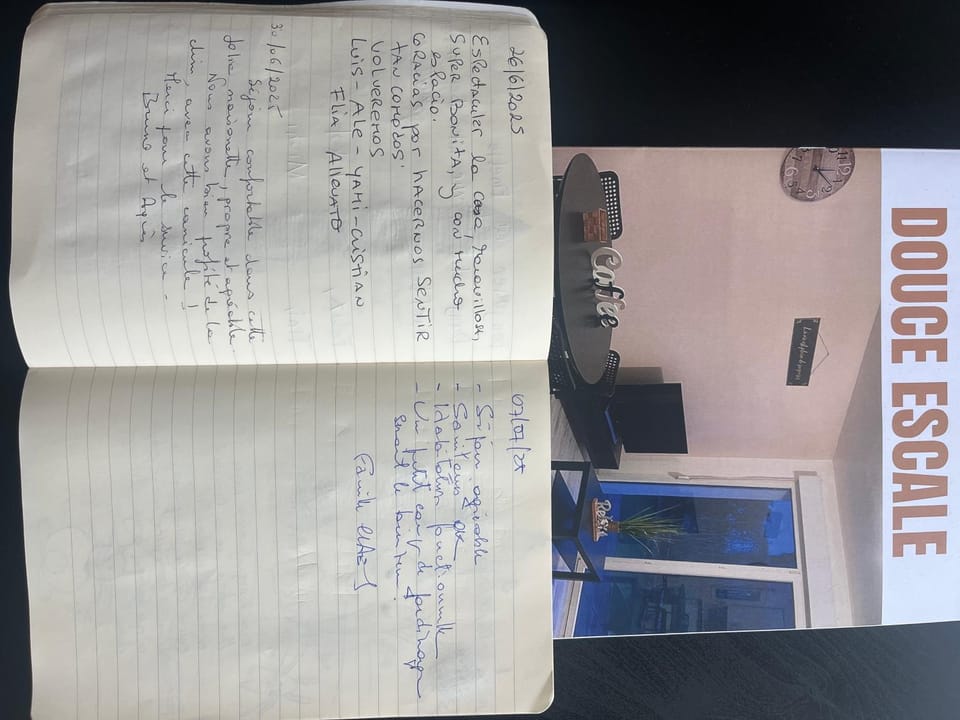 26/6/2025
Espectacular la casa, maravillosa,
super bonita, y con mucho
espacio.
Gracias por hacernos sentir
tan comodos.
Volveremos
Luis - Ale - Yami - Cristian
Flia
30/06/2025
Séjour confortable dans cette
jolie maisonette, propre et agréable.
Nous avons bien profité de la
clim, avec cette canicule !
Merci pour le service -
Bruno et Agnès
07/07/25
- Séjour agréable
- Sanitaires ok
- fonctionnelle
- Un petit coup de jardinage
serait le bienvenu
Famille
DOUCE ESCALE
Coffee
Relax
12
1
2
3
4
5
6